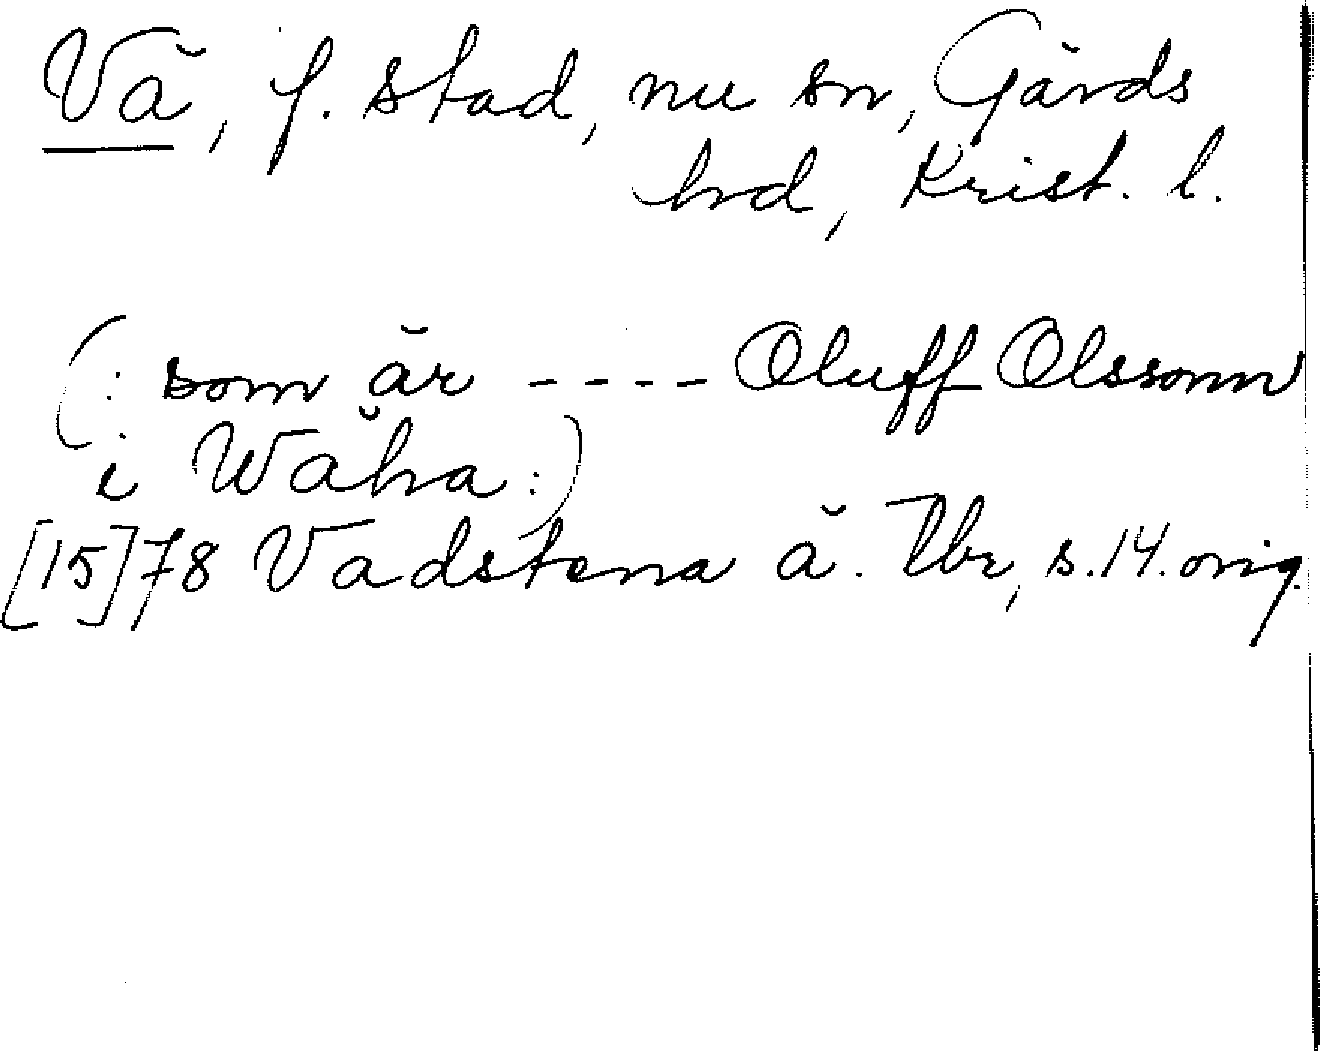 Vä, f. stad, nu sn, Gärds
hrd, Krist. l.
(: som är ---- Oluff Olssonn
i Wäha :)
[15]78 Vadstena ä. Tbr, s. 14. orig.